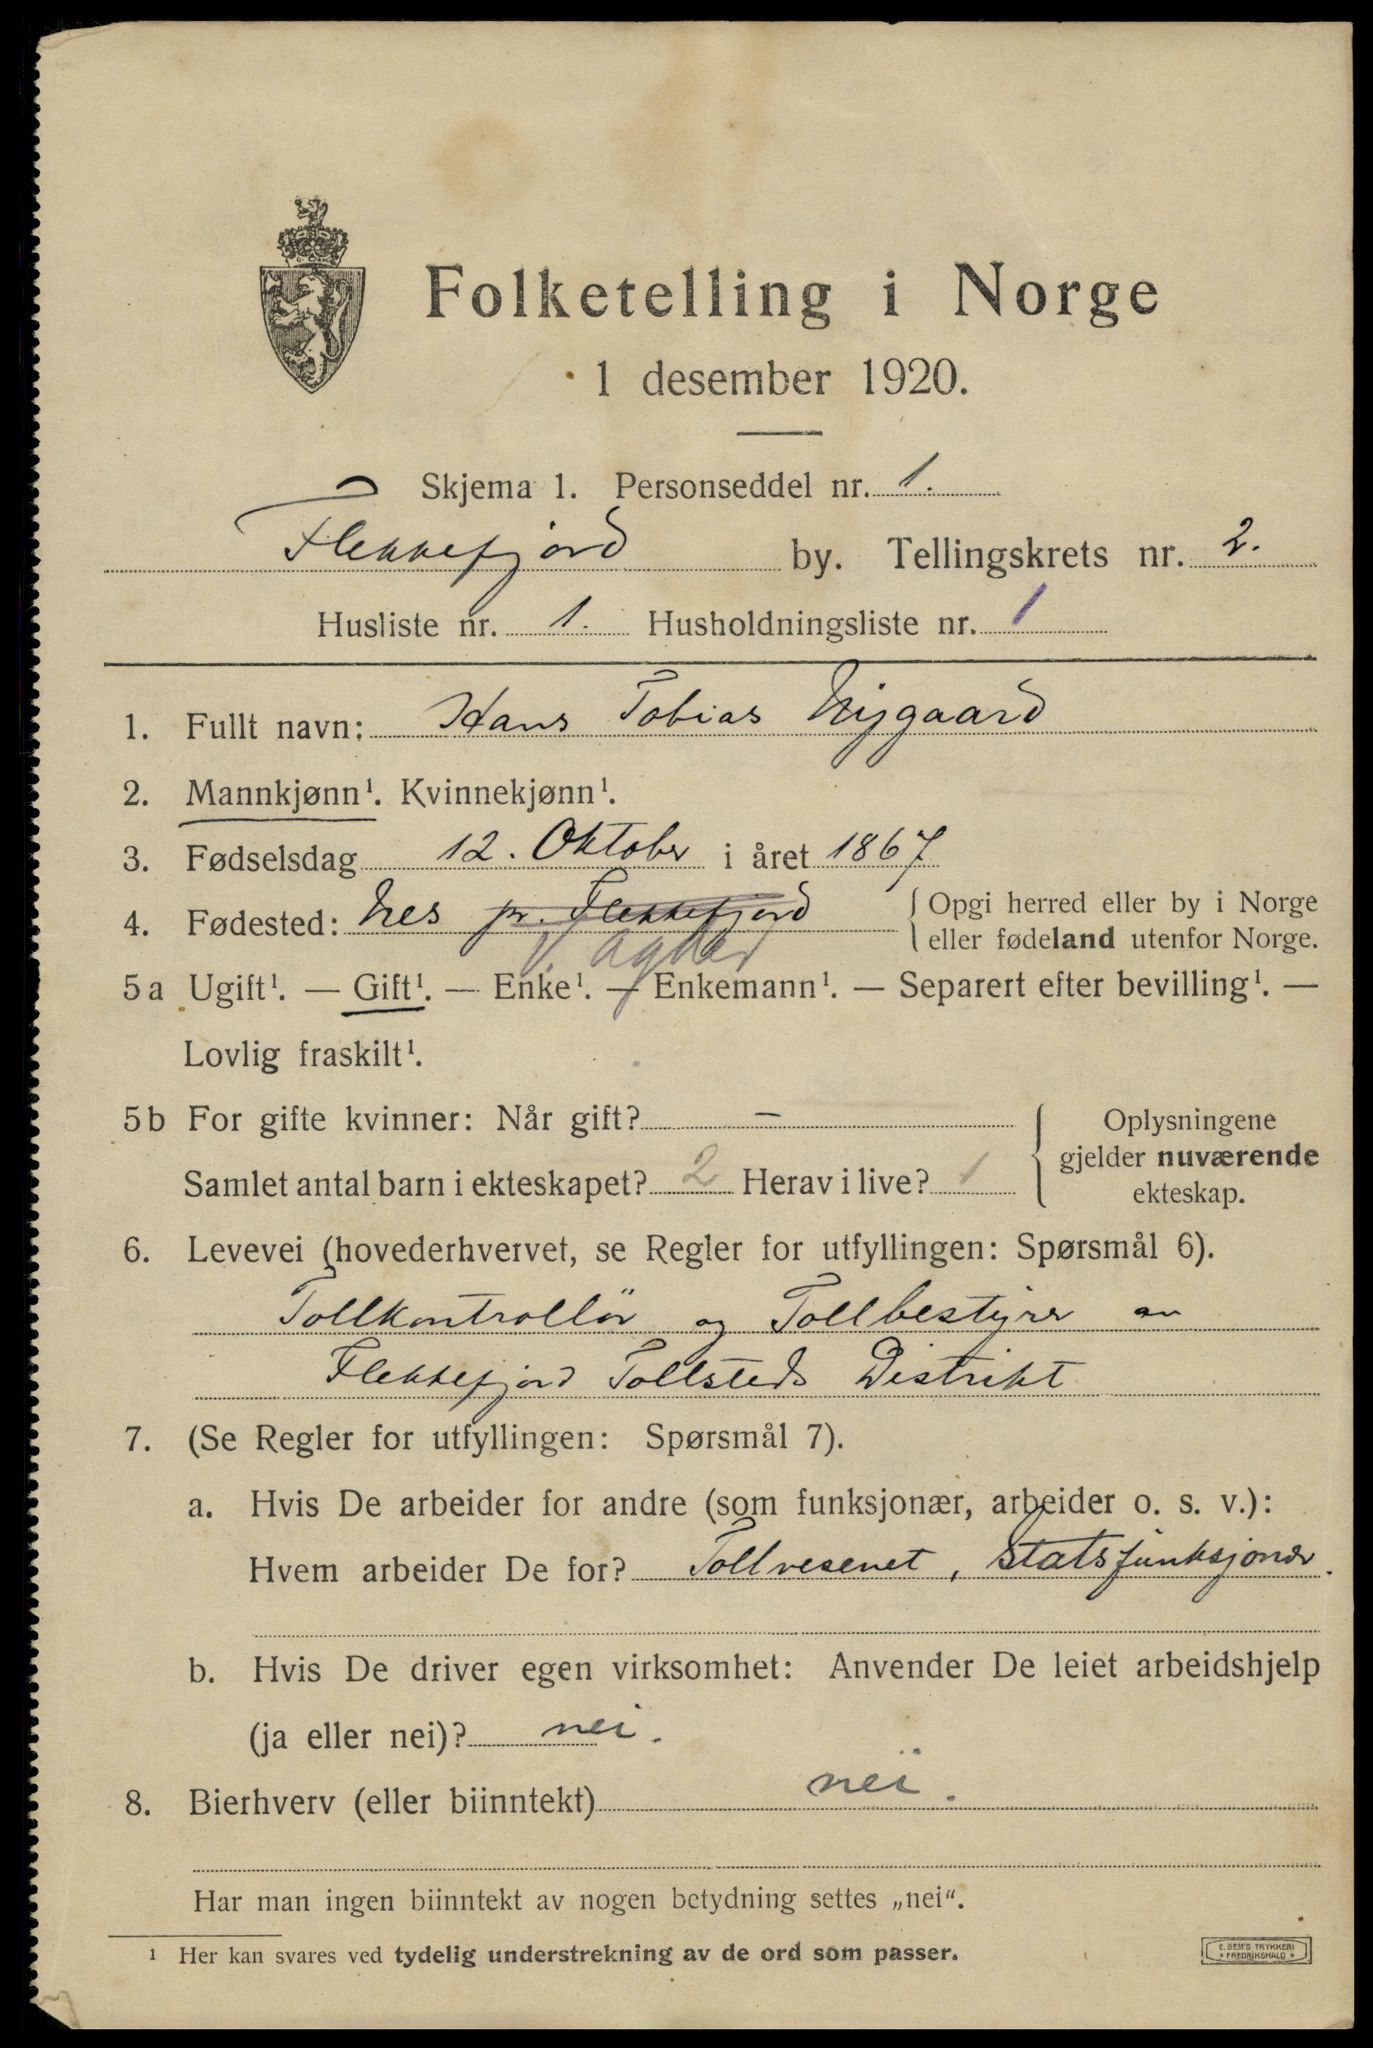 Folketelling i Norge
1 desember 1920.
Skjema 1. Personseddel nr. 1.
Flekkefjord by. Tellingskrets nr. 2.
Husliste nr. 1. Husholdningsliste nr. 1
1. Fullt navn: Hans Tobias Nygaard
2. Mannkjønn¹. Kvinnekjønn¹.
3. Fødselsdag 12. Oktober i året 1867
4. Fødested: Nes pr. Flekkefjord { Opgi herred eller by i Norge
eller fødeland utenfor Norge.
V. Agder
5a Ugift¹. — Gift¹. — Enke¹. — Enkemann¹. — Separert efter bevilling¹. —
Lovlig fraskilt¹.
5b For gifte kvinner: Når gift? —
Samlet antal barn i ekteskapet? 2 Herav i live? 1
{ Oplysningene
gjelder nuværende
ekteskap.
6. Levevei (hovederhvervet, se Regler for utfyllingen: Spørsmål 6).
Tollkontrollør og Tollbestyrer av
Flekkefjord Tollsteds Distrikt
7. (Se Regler for utfyllingen: Spørsmål 7).
a. Hvis De arbeider for andre (som funksjonær, arbeider o. s. v.):
Hvem arbeider De for? Tollvesenet, Statsfunksjonær.
b. Hvis De driver egen virksomhet: Anvender De leiet arbeidshjelp
(ja eller nei)? nei.
8. Bierhverv (eller biinntekt) nei.
Har man ingen biinntekt av nogen betydning settes „nei“.
¹ Her kan svares ved tydelig understrekning av de ord som passer.
E. SEM'S TRYKKERI
* FREDRIKSHALD *